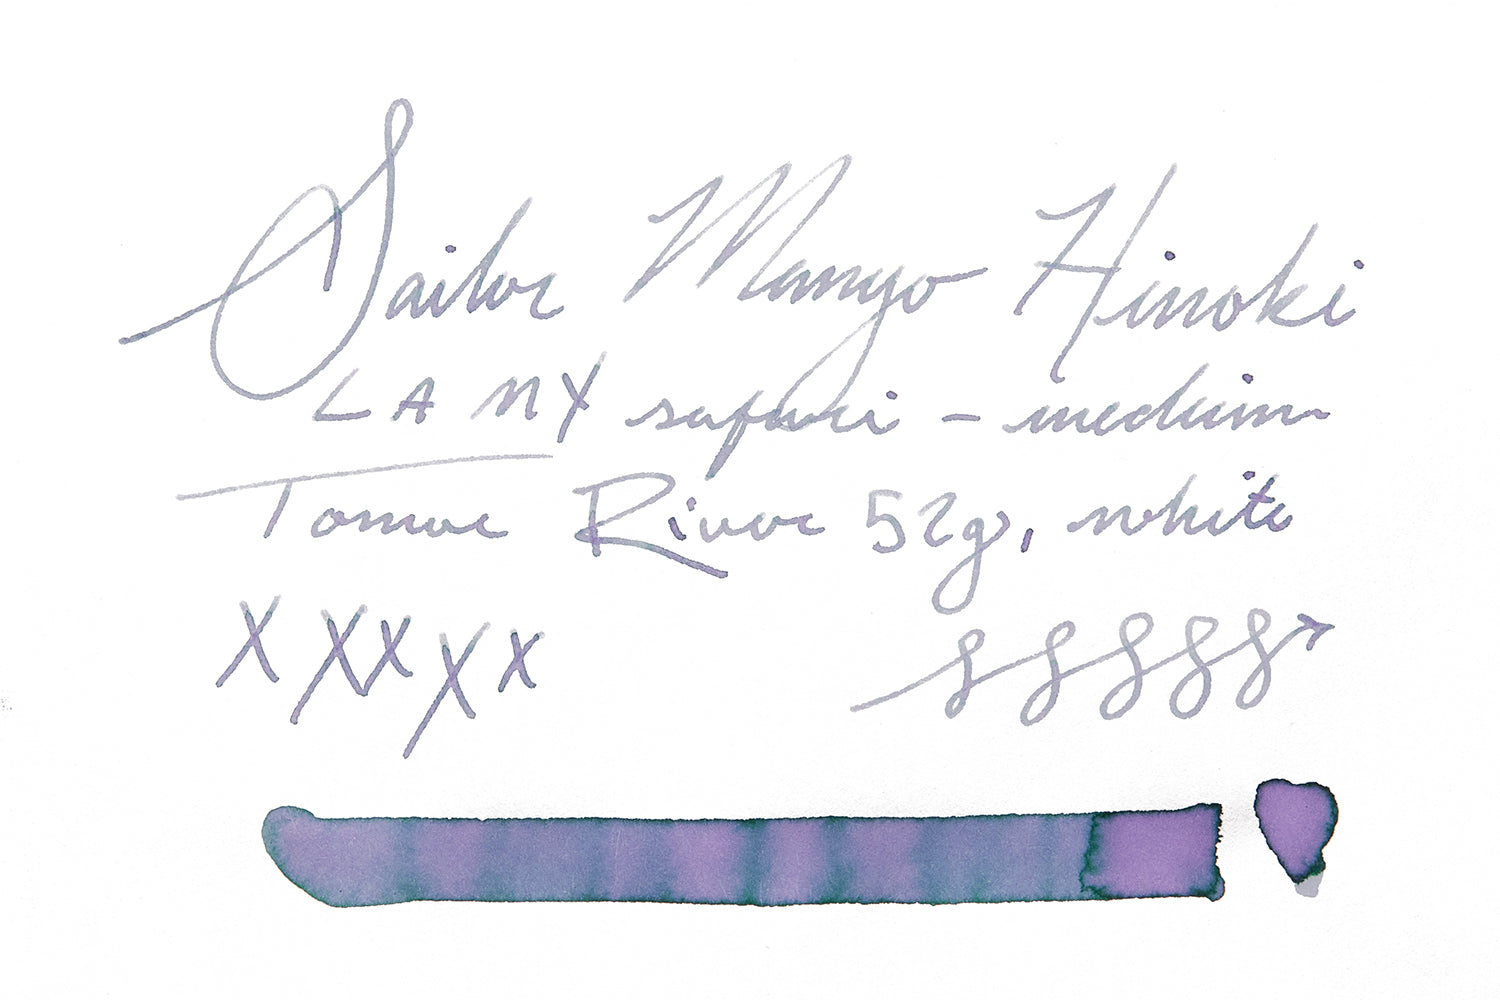 Sailor Manyo Hinoki
LAMY safari - medium
Tomoe River 52g, white
X X X X X